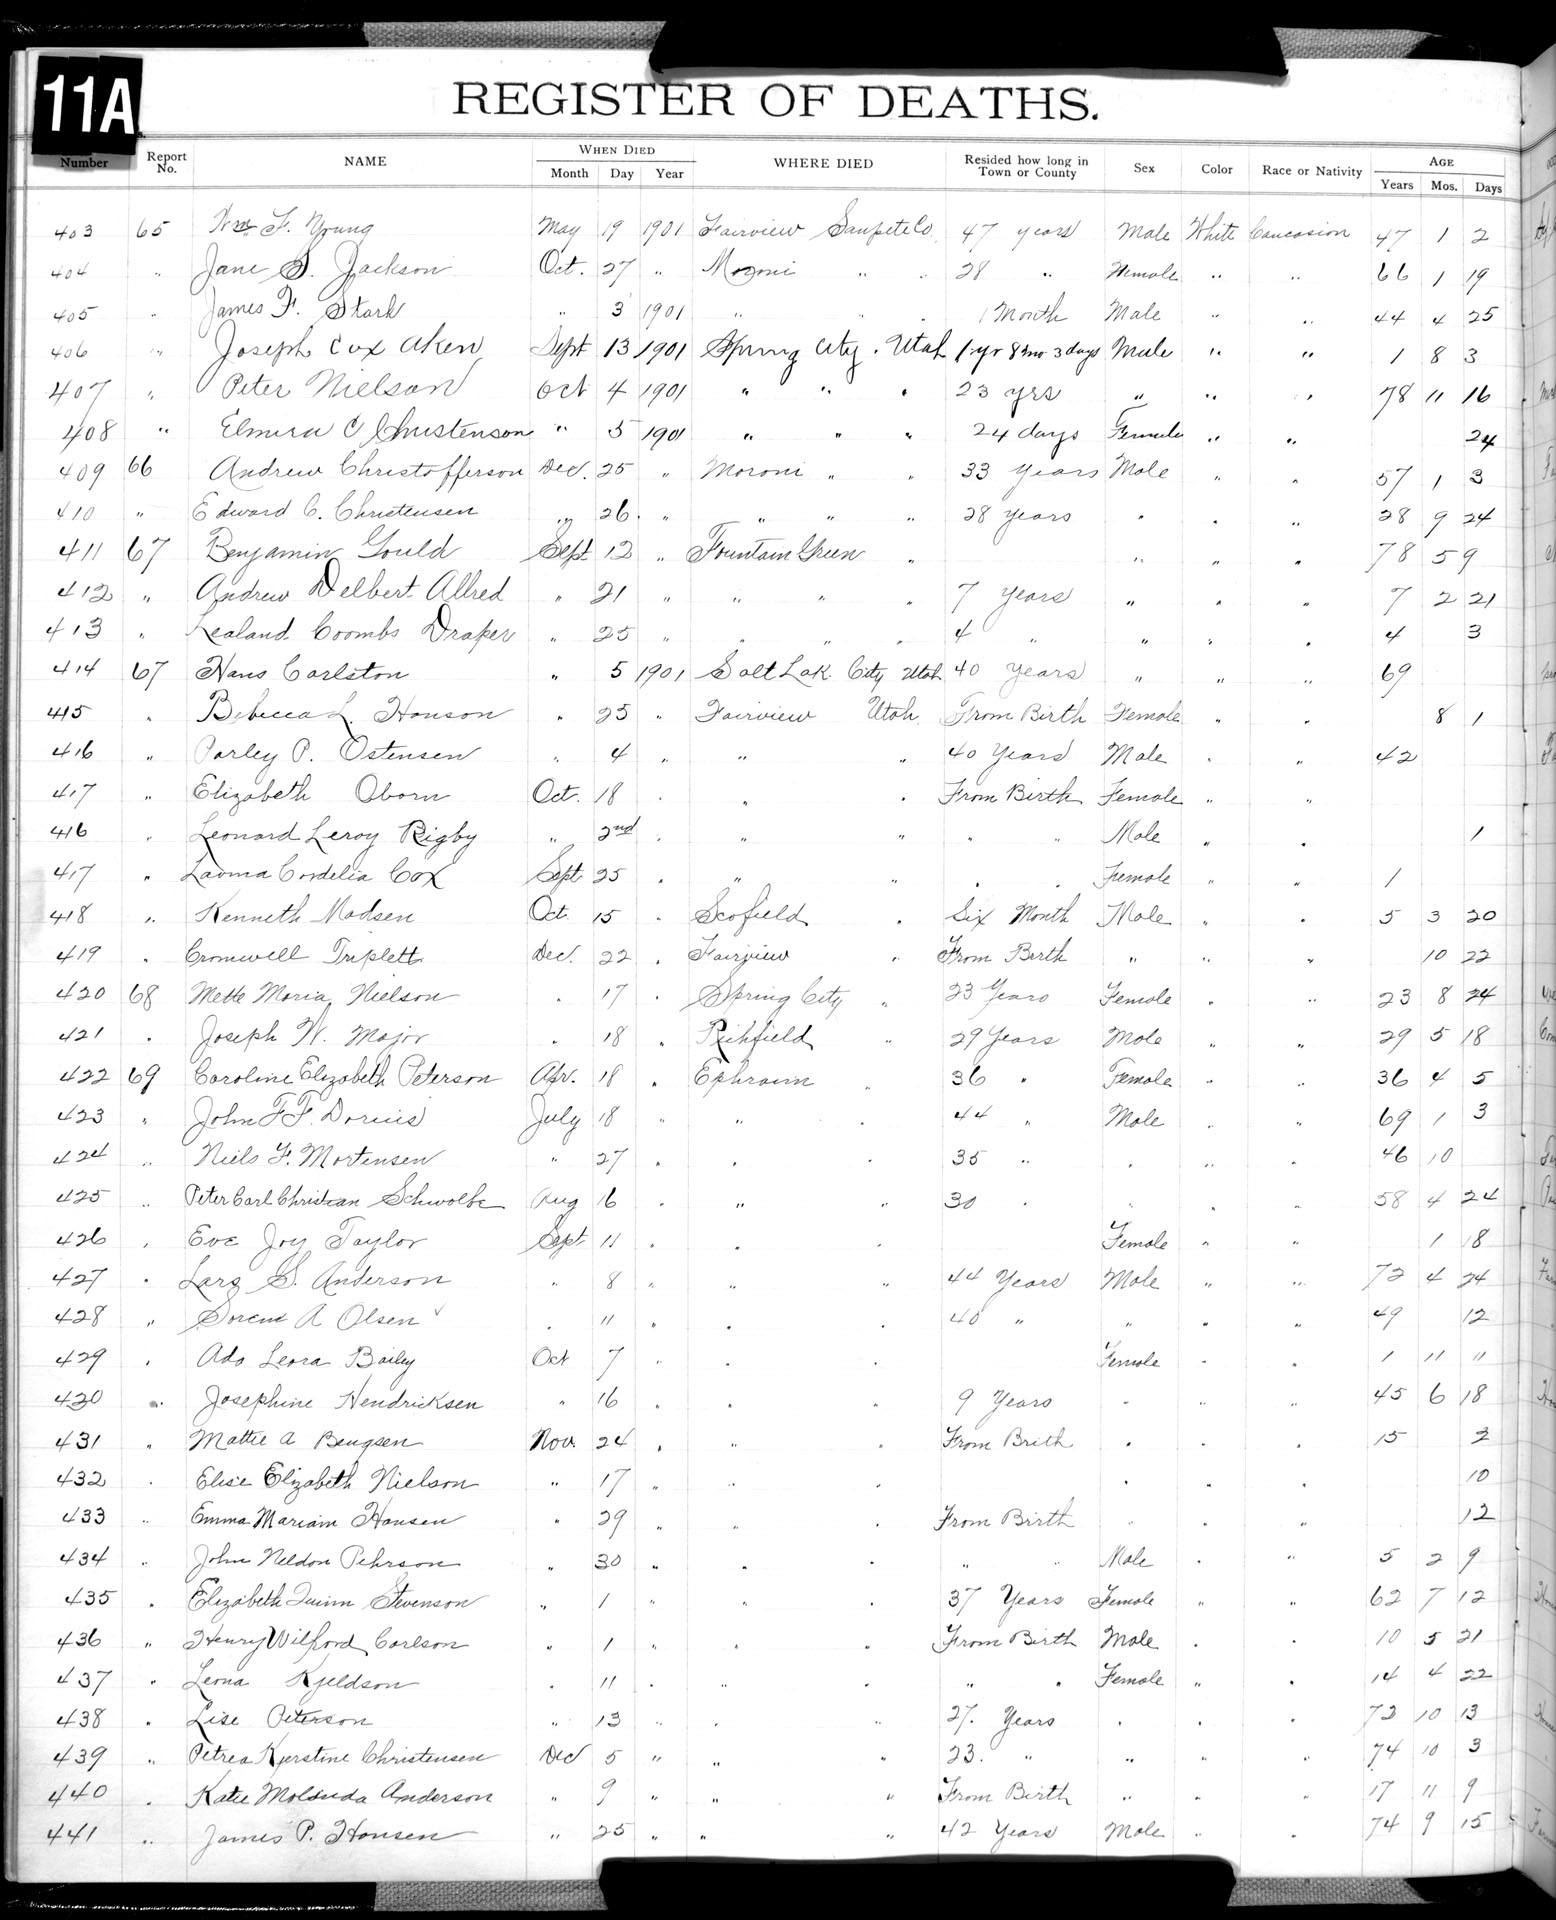 11A
REGISTER OF DEATHS.
Number Report No. NAME WHEN DIED Month Day Year WHERE DIED Resided how long in Town or County Sex Color Race or Nativity AGE Years Mos. Days
403 65 Wm F. Young May 19 1901 Fairview Sanpete Co. 47 years Male White Caucasion 47 1 2
404 " Jane S. Jackson Oct. 27 " Moroni " " 28 " Female " " 66 1 19
405 " James F. Stark " 3 1901 " " 1 Month Male " " 44 4 25
406 " Joseph Cox Aken Sept 13 1901 Spring City. Utah 1 yr 8 mo 3 days Male " " 1 8 3
407 " Peter Nielson Oct 4 1901 " " " 23 yrs " " " 78 11 16
408 " Elmira C Christenson " 5 1901 " " " 24 days Female " " 24
409 66 Andrew Christofferson Dec. 25 " Moroni " " 33 Years Male " " 57 1 3
410 " Edward C. Christensen " 26 " " " " 28 years " " " 28 9 24
411 67 Benjamin Gould Sept 12 " Fountain Green " " " " 78 5 9
412 " Andrew Delbert Allred " 21 " " " " 7 years " " " 7 2 21
413 " Lealand Coombs Draper " 25 " " " " 4 " " " " 4 3
414 67 Hans Carlston " 5 1901 Salt Lak. City Utah 40 years " " " 69
415 " Rebecca L. Hanson " 25 " Fairview Utah From Birth Female " " 8 1
416 " Parley P. Ostensen " 4 " " " 40 Years Male " " 42
417 " Elizabeth Oborn Oct. 18 " " " From Birth Female " "
416 " Leonard Leroy Rigby " 2nd " " " " " Male " " 1
417 " Cordelia Cox Sept 25 " " " " " Female " " 1
418 " Kenneth Madsen Oct. 15 " Scofield " Six Month Male " " 5 3 20
419 " Cromwell Triplett Dec. 22 " Fairview " From Birth " " " 10 22
420 68 Mette Maria Nielson " 17 " Spring City " 23 Years Female " " 23 8 24
421 " Joseph W. Major " 18 " Richfield " 29 Years Male " " 29 5 18
422 69 Caroline Elizabeth Peterson Apr. 18 " Ephraim " 36 " Female " " 36 4 5
423 " John F F. Dorius July 18 " " " 44 " Male " " 69 1 3
424 " Niels F. Mortensen " 27 " " " 35 " " " " 46 10
425 " Peter Carl Christian Schwolbe Aug 16 " " " 30 " " " " 58 4 24
426 " Eve Joy Taylor Sept 11 " " " Female " " 1 18
427 " Lars S. Anderson " 8 " " " 44 Years Male " " 72 4 24
428 " Soren A Olsen " 11 " " " 40 " " " " 49 12
429 " Ada Leora Bailey Oct 7 " " " Female " " 1 11 11
420 " Josephine Hendricksen " 16 " " " 9 Years " " " 45 6 18
431 " Mattie A Bengsen Nov. 24 " " " From Brith " " " 15 2
432 " Elsie Elizabeth Nielson " 17 " " " " " " 10
433 " Emma Mariam Hansen " 29 " " " From Birth " " " 12
434 " John Neldon Pehrson " 30 " " " " " Male " " 5 2 9
435 " Elizabeth Stevenson " 1 " " " 37 Years Female " " 62 7 12
436 " Henry Wilford Carlson " 1 " " " From Birth Male " " 10 5 21
437 " Leona Kjeldson " 11 " " " " " Female " " 14 4 22
438 " Lise Peterson " 13 " " " 27. Years " " " 72 10 13
439 " Petrea Kjerstine Christensen Dec 5 " " " 23. " " " " 74 10 3
440 " Katie Anderson " 9 " " " From Birth " " " 17 11 9
441 " James P. Hansen " 25 " " " 42 Years Male " " 74 9 15